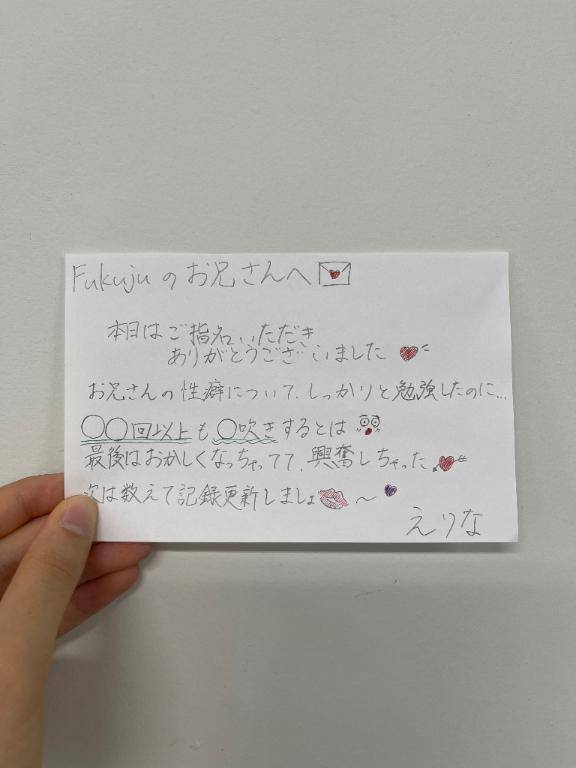 Fukujuのお兄さんへ
本日はご指名いただき
ありがとうございました
お兄さんの性癖について、しっかりと勉強したのに...
○○回以上も○吹きするとは
最後はおかしくなっちゃってて、興奮しちゃった
次は数えて記録更新しましょ〜
えりな